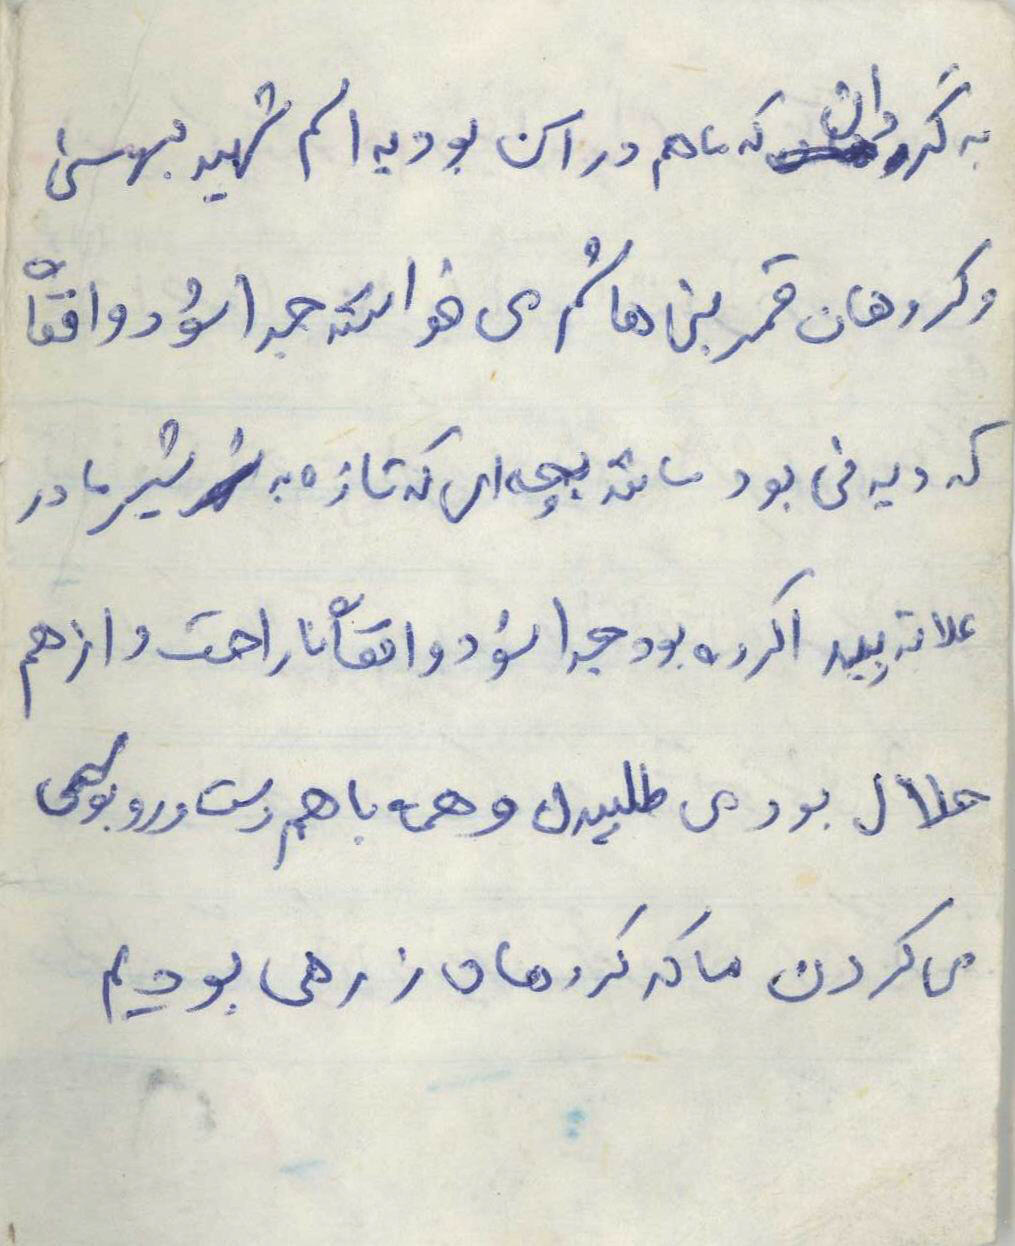 به گردان که ما هم در آن بودیم اسم شهید بهشتی
و گروهان قمر بنی هاشم می خواست جدا شود واقعاً
که دیدنی بود مانند بچه ای که تازه به شیر مادر
علاقه پیدا کرده بود جدا شود واقعاً ناراحت و از هم
حلال بودی می طلبیدن و همه با هم دست و روبوسی
می کردن ما که گروهان زرهی بودیم